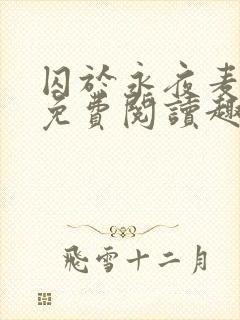 囚於永夜麦
免費閱讀趣
飛雪十二月